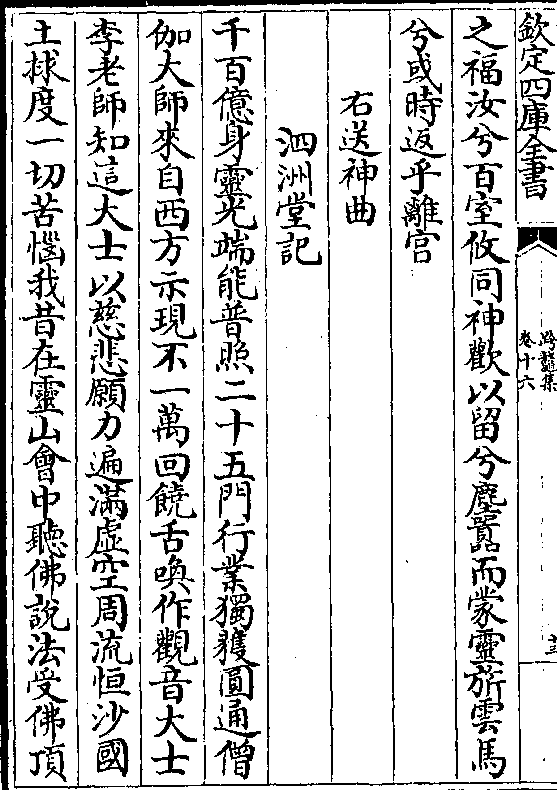 欽定四庫全書
跨鼇集
卷十六
之福汝兮百室攸同神歡以留兮塵囂而蒙靈旂雲馬
兮或時返乎離宫
右送神曲
泗洲堂記
千百億身靈光端能普照二十五門行業獨獲圓通僧
伽大師來自西方示現不一萬回饒舌喚作觀音大士
李老師知這大士以慈悲願力遍滿虛空周流恒沙國
土捄度一切苦惱我昔在靈山會中聽佛說法受佛頂